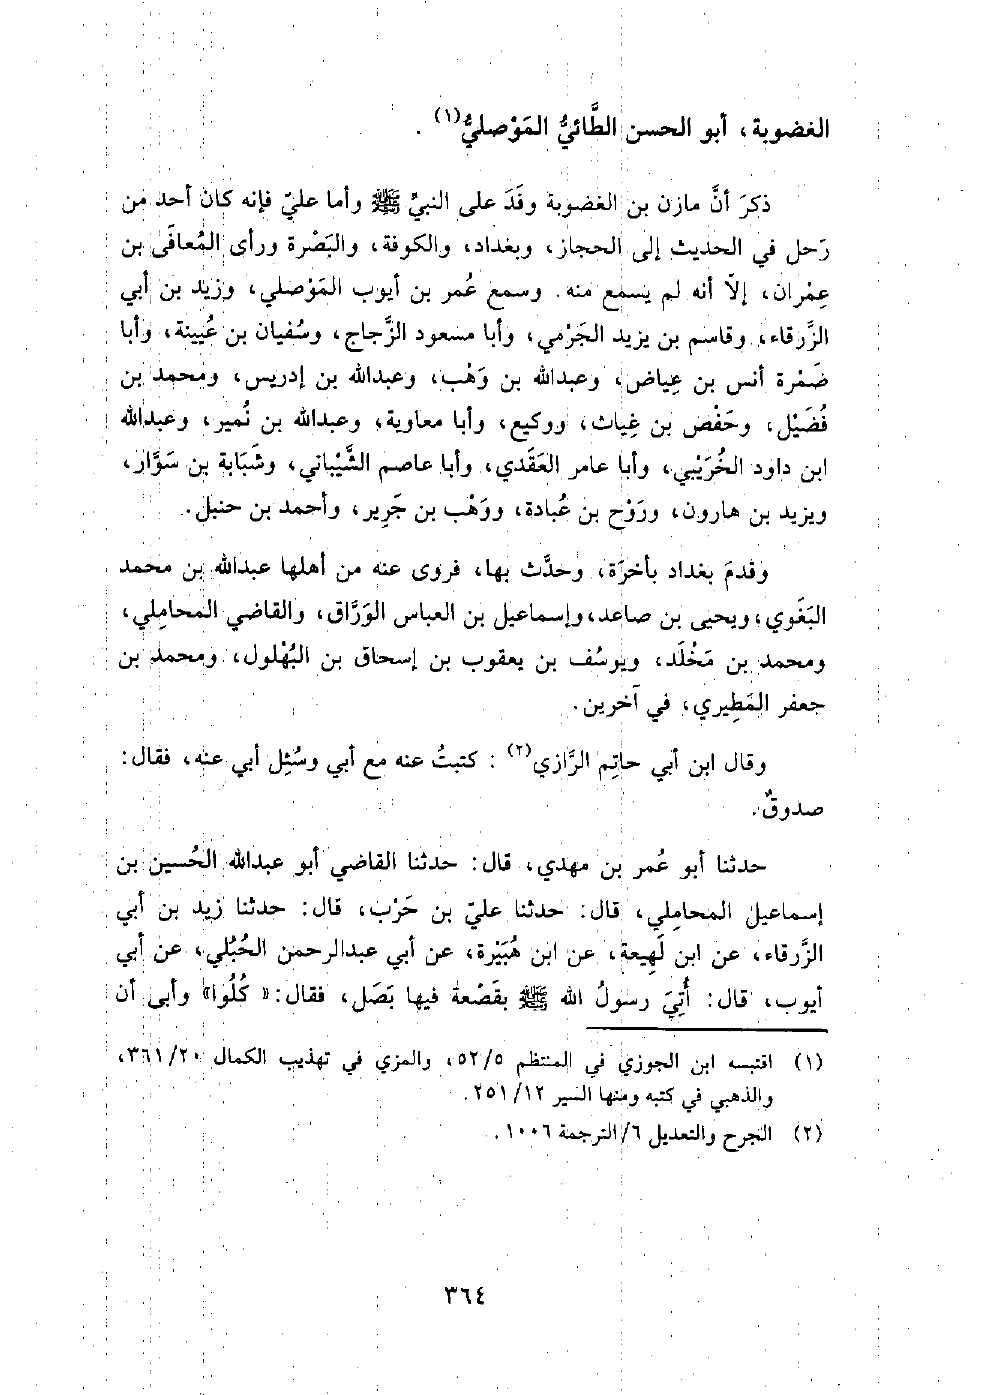 الغضوبة، أبو الحسن الطَّائيُّ المَوْصليُّ(١) .
ذكرَ أنَّ مازن بن الغضوبة وفَدَ على النبيِّ ﷺ وأما عليّ فإنه كان أحد من
رَحل في الحديث إلى الحجاز، وبغداد، والكوفة، والبَصْرة ورأى المُعافَى بن
عِمْران، إلّا أنه لم يسمع منه. وسمع عُمر بن أيوب المَوْصلي، وزيد بن أبي
الزَّرقاء، وقاسم بن يزيد الجَرْمي، وأبا مسعود الزَّجاج، وسُفيان بن عُيينة، وأبا
ضَمْرة أنس بن عِياض، وعبدالله بن وَهْب، وعبدالله بن إدريس، ومحمد بن
فُضَيْل، وحَفْص بن غِياث، ووكيع، وأبا معاوية، وعبدالله بن نُمير، وعبدالله
ابن داود الخُرَيْبي، وأبا عامر العَقَدي، وأبا عاصم الشَّيْباني، وشَبَابة بن سَوَّار،
ويزيد بن هارون، ورَوْح بن عُبادة، ووَهْب بن جَرِير، وأحمد بن حنبل.
وقدمَ بغداد بأخرَة، وحدَّث بها، فروى عنه من أهلها عبدالله بن محمد
البَغَوي، ويحيى بن صاعد، وإسماعيل بن العباس الوَرَّاق، والقاضي المحامِلي،
ومحمد بن مَخْلَد، ويوسُف بن يعقوب بن إسحاق بن البُهْلول، ومحمد بن
جعفر المَطِيري، في آخرين.
وقال ابن أبي حاتِم الرَّازي(٢) : كتبتُ عنه مع أبي وسُئِل أبي عنه، فقال:
صدوقٌ.
حدثنا أبو عُمر بن مهدي، قال: حدثنا القاضي أبو عبدالله الحُسين بن
إسماعيل المحامِلي، قال: حدثنا عليّ بن حَرْب، قال: حدثنا زيد بن أبي
الزَّرقاء، عن ابن لَهِيعة، عن ابن هُبَيْرة، عن أبي عبدالرحمن الحُبُلي، عن أبي
أيوب، قال: أُتِيَ رسولُ الله ﷺ بقَصْعة فيها بَصَل، فقال: « كُلُوا» وأبى أن
(١) اقتبسه ابن الجوزي في المنتظم ٥٢/٥، والمزي في تهذيب الكمال ٣٦١/٢٠،
والذهبي في كتبه ومنها السير ٢٥١/١٢.
(٢) الجرح والتعديل ٦/ الترجمة ١٠٠٦.
٣٦٤